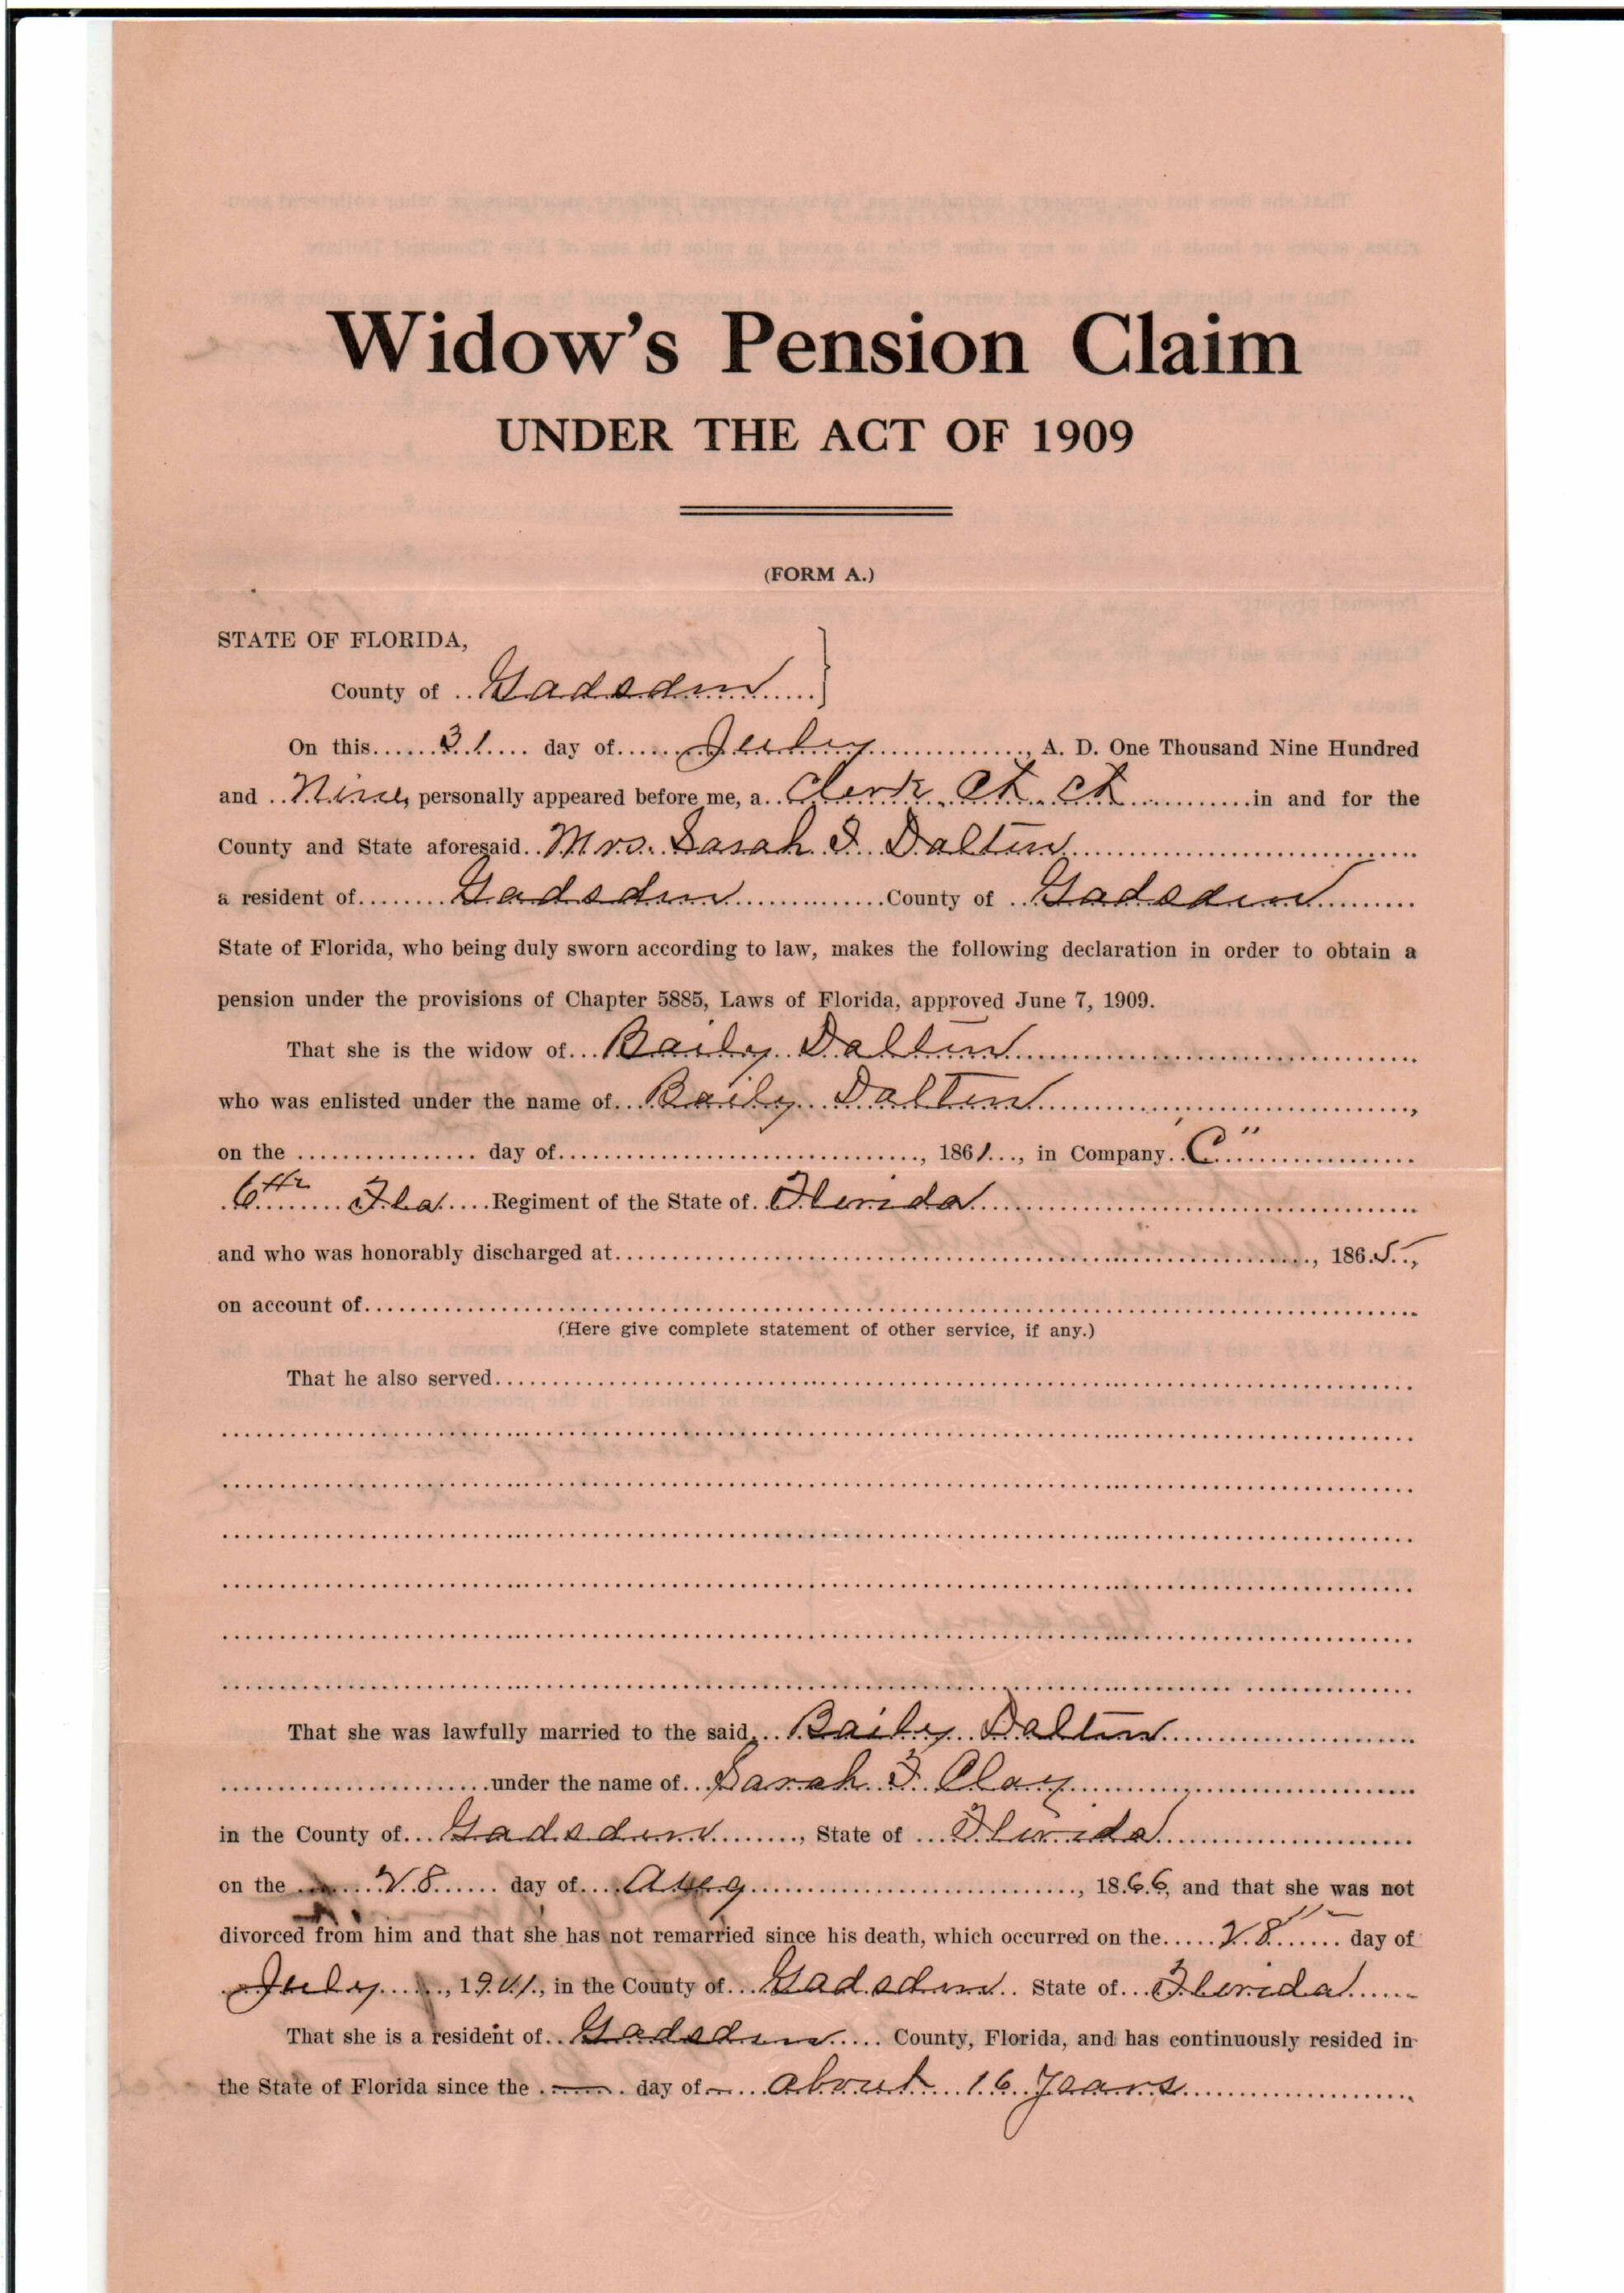 Widow's Pension Claim
UNDER THE ACT OF 1909
(FORM A.)
STATE OF FLORIDA,
County of Gadsden
On this 31 day of July, A. D. One Thousand Nine Hundred
and Nine, personally appeared before me, a Clerk Ct. Ct. in and for the
County and State aforesaid Mrs. Sarah F. Dalton
a resident of Gadsden County of Gadsden
State of Florida, who being duly sworn according to law, makes the following declaration in order to obtain a
pension under the provisions of Chapter 5885, Laws of Florida, approved June 7, 1909.
That she is the widow of Baily Dalton
who was enlisted under the name of Baily Dalton,
on the day of, 1861, in Company "C"
6th Fla Regiment of the State of Florida
and who was honorably discharged at, 1865,
on account of
(Here give complete statement of other service, if any.)
That he also served
That she was lawfully married to the said Baily Dalton
under the name of Sarah F. Clay
in the County of Gadsden, State of Florida
on the 28 day of Aug, 1866, and that she was not
divorced from him and that she has not remarried since his death, which occurred on the 28 day of
July, 1901, in the County of Gadsden State of Florida
That she is a resident of Gadsden County, Florida, and has continuously resided in
the State of Florida since the — day of — about 16 years